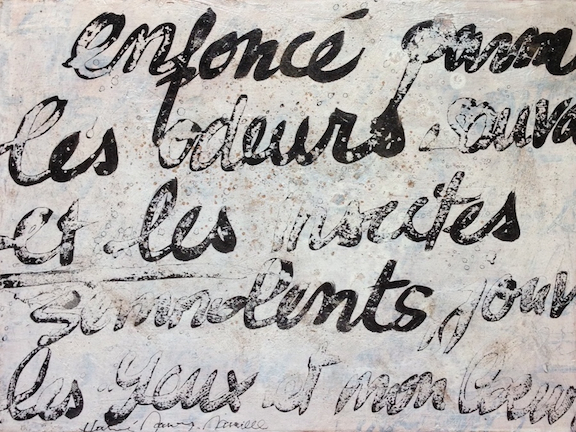 enfoncé parm
les odeurs sauva
et les insectes
somnolents, jour
les yeux et mon coeur